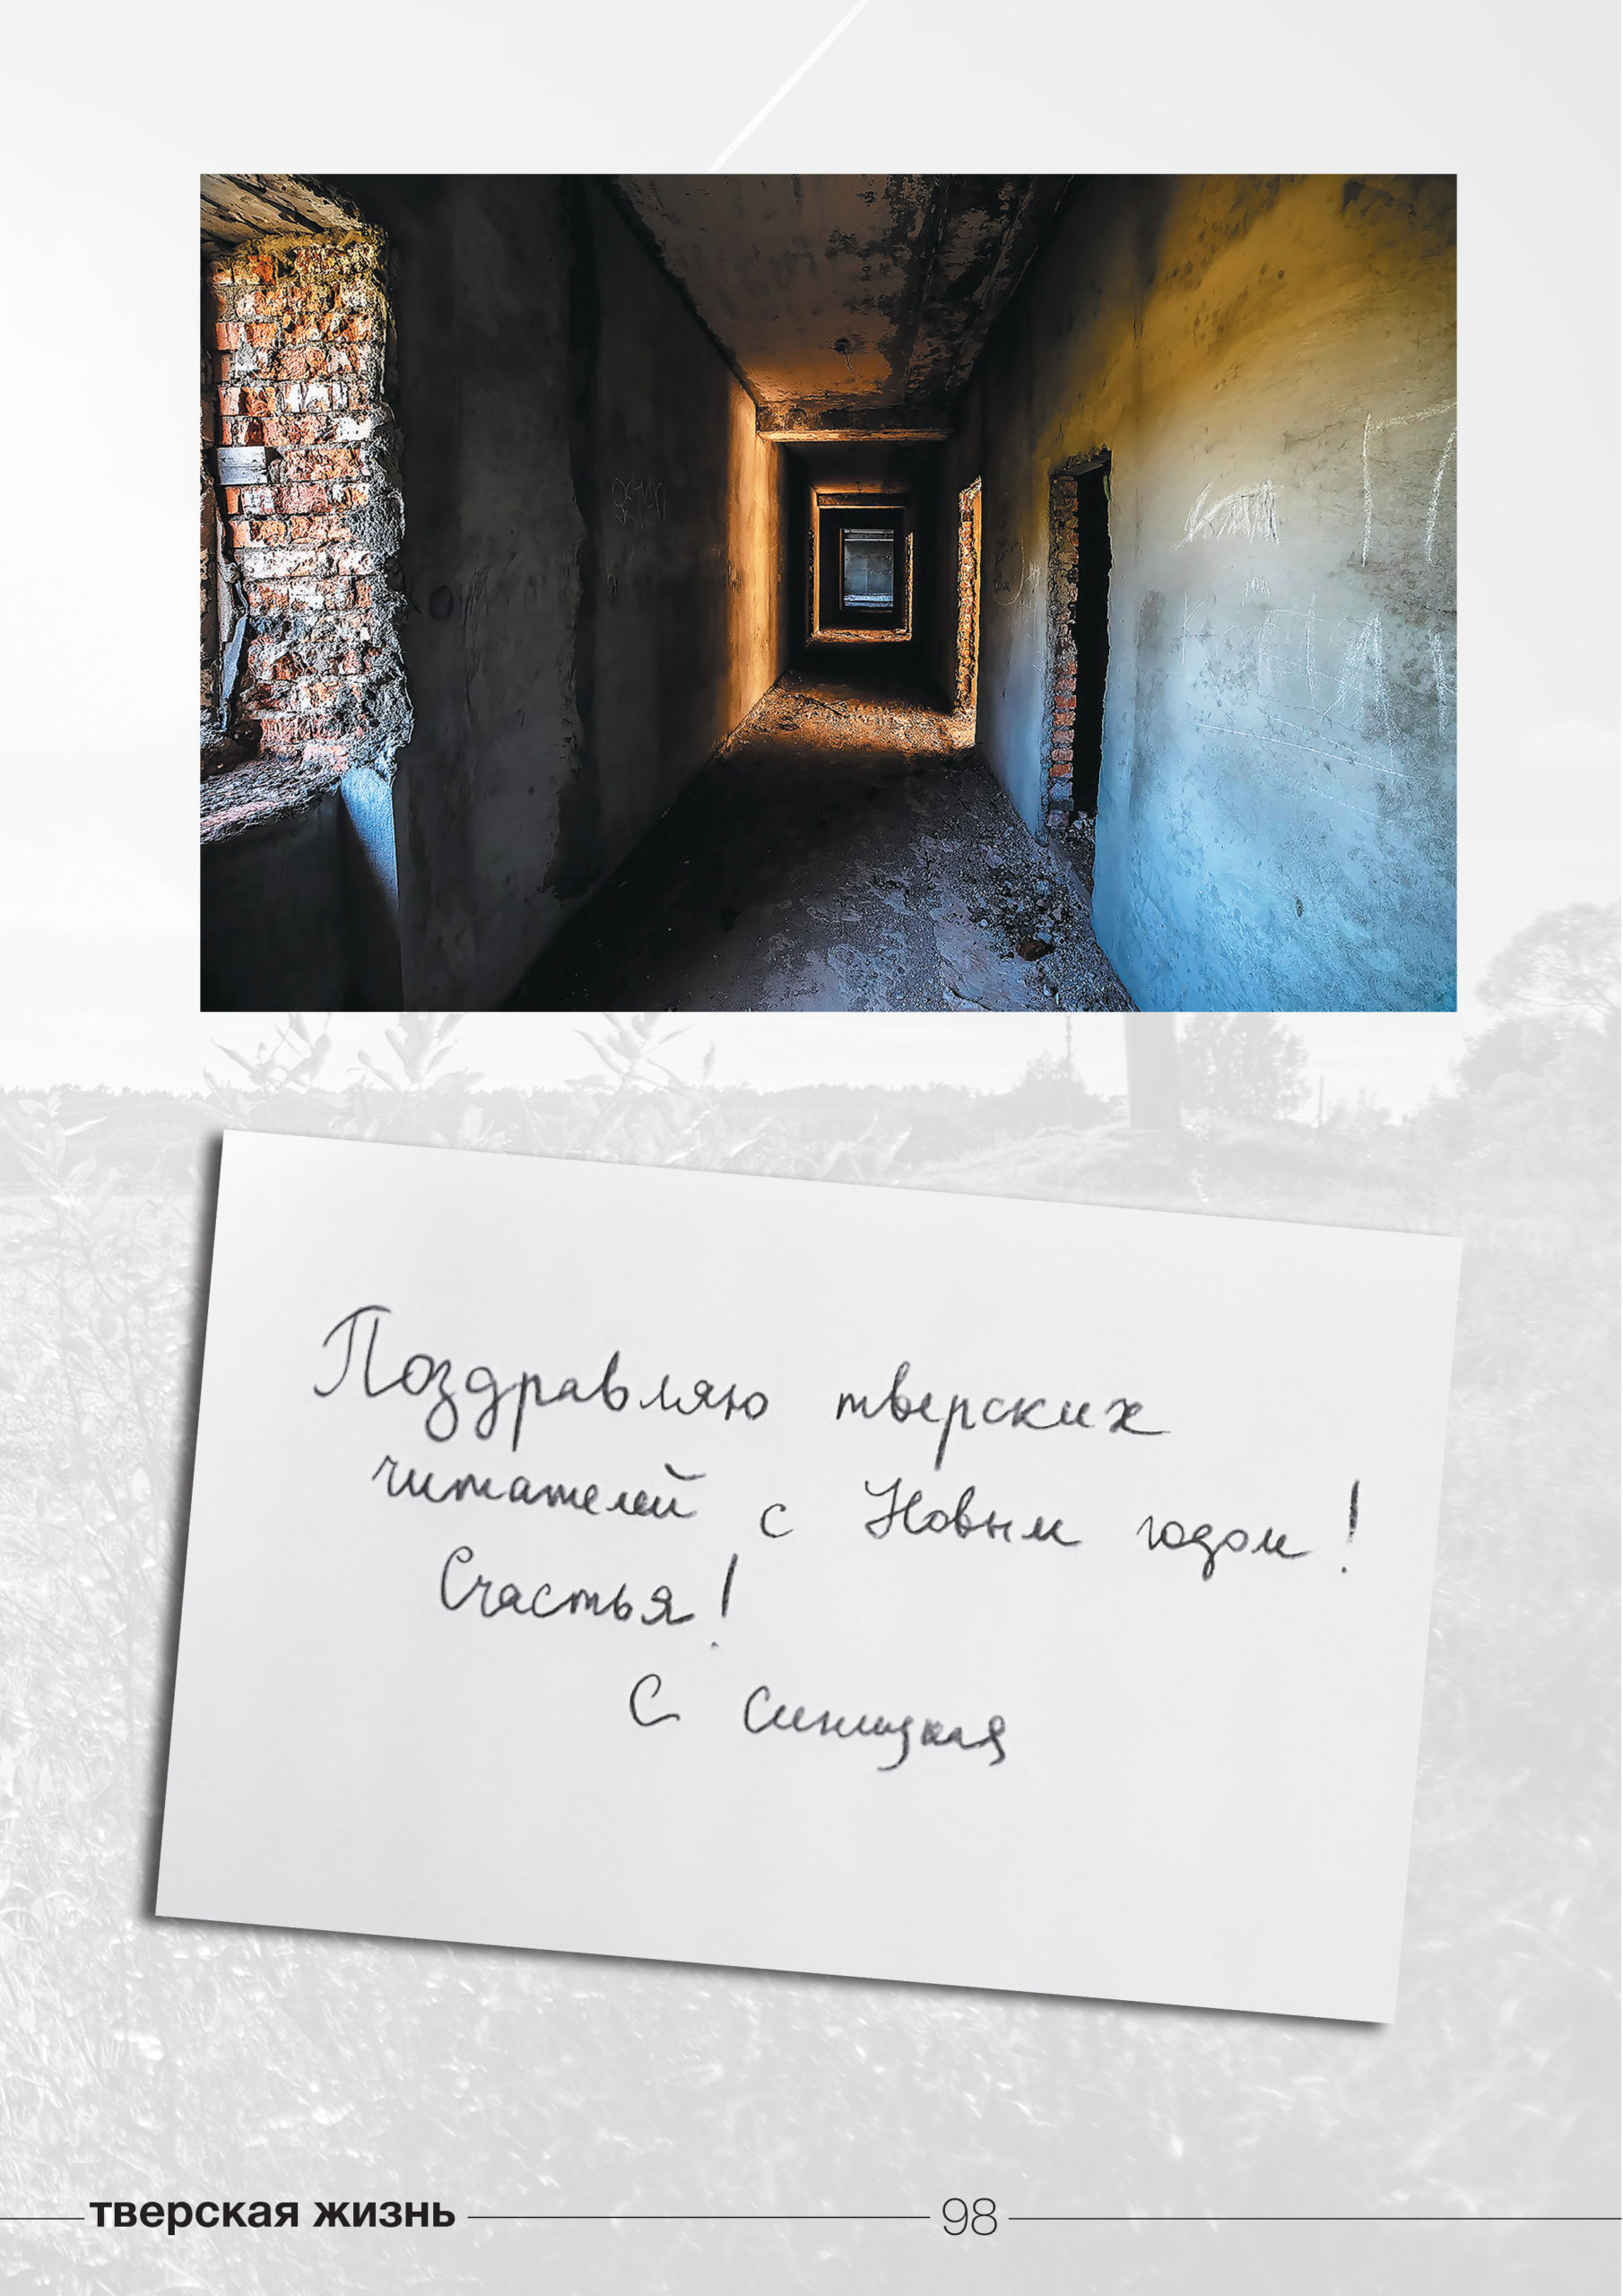 Поздравляю тверских
читателей с Новым годом!
Счастья!
С Синицкая
тверская жизнь 98